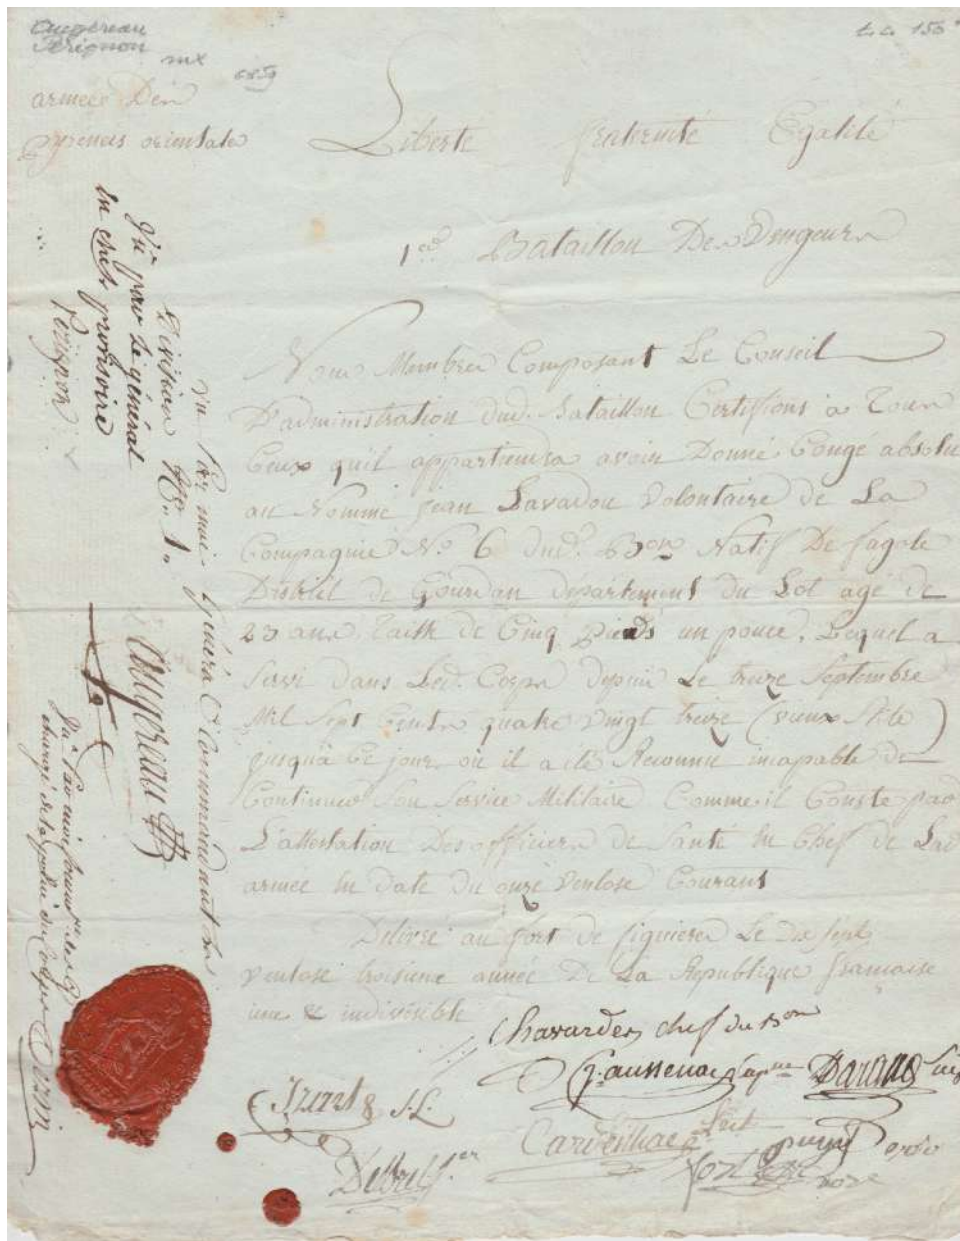 Augereau
Pérignon
150
armée Des
pyrenées orientales
Liberté fraternité Egalité
1er Bataillon Des Vengeurs
Nous Membres Composant Le Conseil
D'administration dud. Bataillon Certifions à Tous
Ceux quil appartiendra avoir Donné Congé absolu
au Nommé Jean Lavadou Volontaire de La
Compagnie No. 6 dud. Bon Natif De fagole
District de Gourdan département du Lot agé de
23 ans, Taille de Cinq pieds un pouce, Lequel a
Servi dans Led. Corps depuis Le treize Septembre
Mil Sept Cents quatre vingt treize (vieux Stile)
jusqu'à Ce jour où il a été Reconnu incapable de
Continuer Son Service Militaire Comme il Conste par
L'attestation Des officiers de Santé En Chef de Lad.
armée En Date du onze Ventose Courant
Délivré au fort de figuieres Le dix Sept
Ventose troisieme année De La République francaise
une & indivisible
Chavardes chef du Bon
Cardeilhac Lieut
Delbrel
Vu Par moi Général Commandant la
Division No. 1.
Augereau
Vu par le général
en chef provisoire
Pérignon
Vu Par moi
chargé de la police du Corps